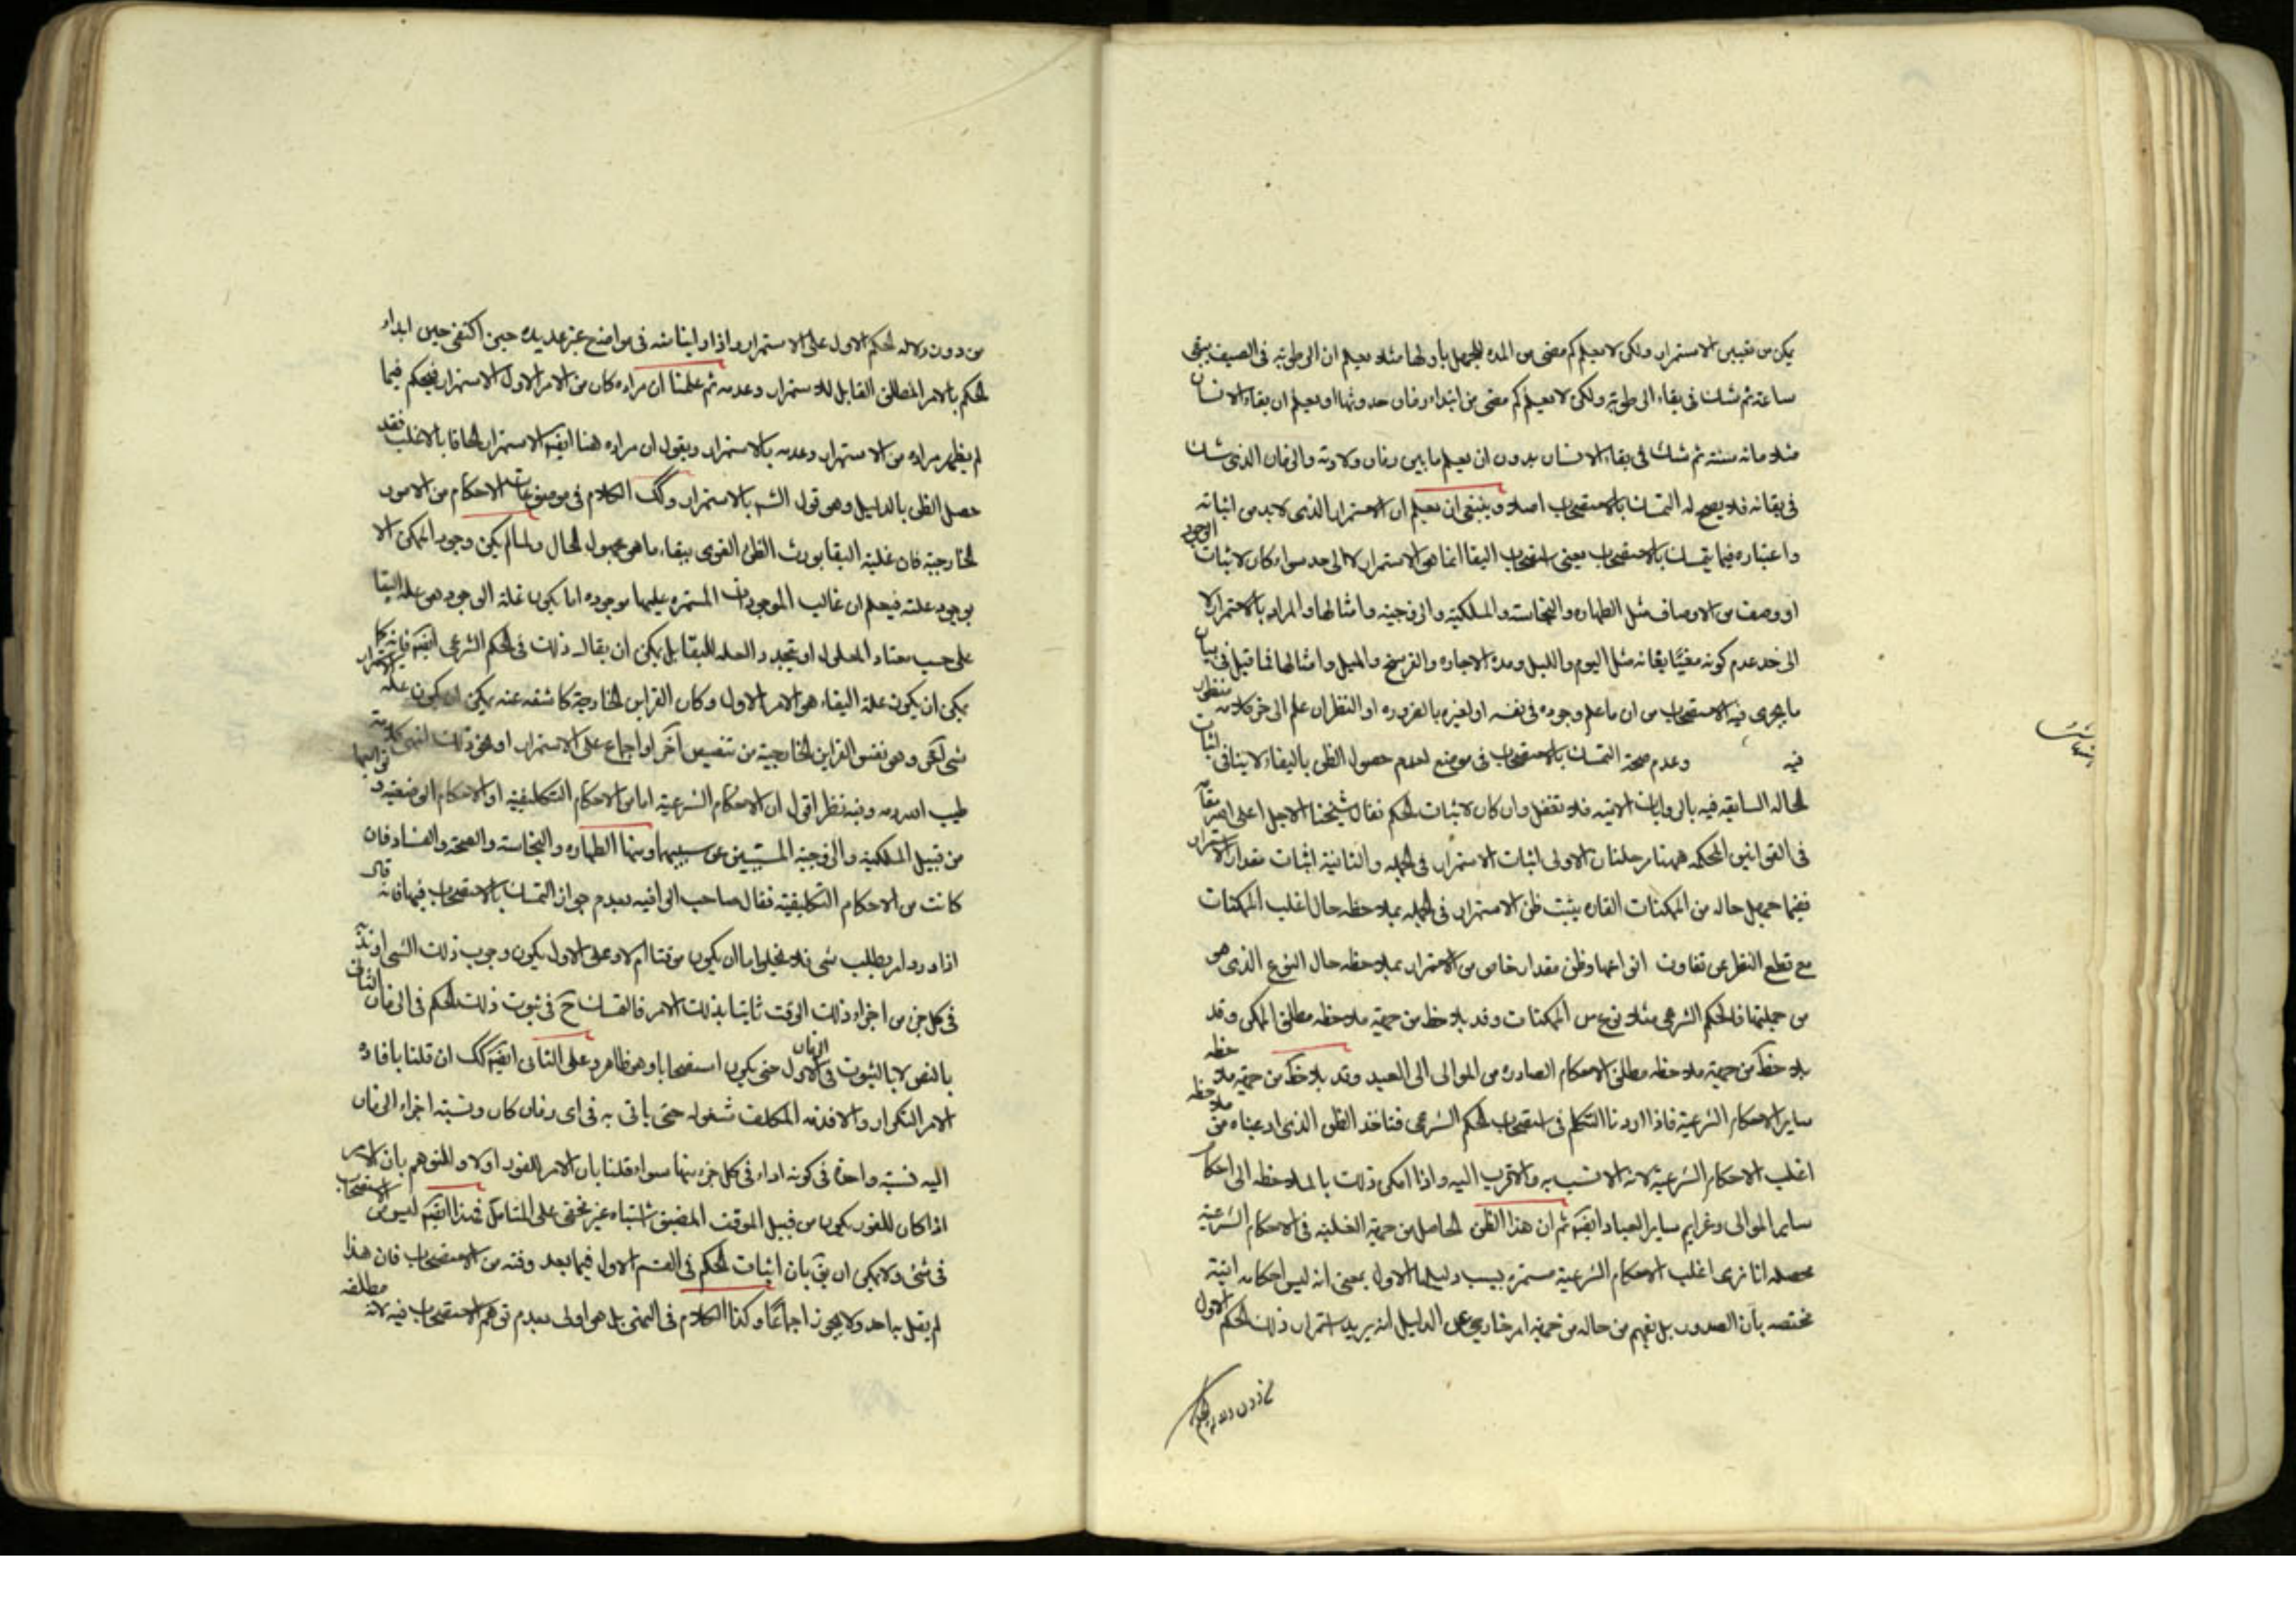 يمكن من تعيين الاستمرار ولكن لا نعلم كم مضى من المدة للجهل بأولها مثلا نعلم ان الرطوبة فى الصيف يبقى
ساعة ثم نشك فى بقاء الرطوبة ولكن لا نعلم كم مضى من ابتداء زمان حدوثها او نعلم ان بقاء الانسان
مثلا مائة سنة ثم نشك فى بقاء الانسان بدون ان نعلم ما بين زمان ولادته والزمان الذى نشك
فى بقائه فلا يصح له التمسك بالاستصحاب اصلا وينبغى ان نعلم ان الاستمرار الذى لا بد من اثباته
واعتباره فيما يتمسك بالاستصحاب يعنى استصحاب البقا انما هو الاستمرار لا الى حد سواء كان لاثبات الوجود
او وصف من الاوصاف مثل الطهارة والنجاسة والملكية والزوجية وامثالها والمراد بالاستمرار لا
الى حد عدم كونه مغيّا بغاية مثل اليوم والليل ومدة الاجارة والفرسخ والميل وامثالها فما قيل فى بيان
ما يجرى فيه الاستصحاب من ان ما علم وجوده فى نفسه او لغيره بالضرورة او النظر ان علم الى خر كلامه منظور
فيه وعدم صحة التمسك بالاستصحاب فى موضع لعدم حصول الظن بالبقاء لا ينافى اثبات
الحالة السابقة فيه بالروايات الاتية فلا تغفل وان كان لاثبات الحكم فقال شيخنا الاجل اعلى الله مقامه
فى القوانين المحكمه ههنا مرحلتان الاولى اثبات الاستمرار فى الجملة والثانية اثبات مقدار الاستمرار
ففيما جهل حاله من الممكنات القارة يثبت ظن الاستمرار فى الجملة بملاحظة حال اغلب الممكنات
مع قطع النظر عن تفاوت انواعها وظن مقدار خاص من الاستمرار بملاحظة حال النوع الذى هو
من جملتها فالحكم الشرعى مثلا نوع من الممكنات وقد يلاحظ من جهة ملاحظة مطلق الممكن وقد
يلاحظ من جهة ملاحظة مطلق الاحكام الصادرة من الموالى الى العبيد وقد يلاحظ من جهة ملاحظة
ساير الاحكام الشرعية فاذا اردنا التكلم فى استصحاب الحكم الشرعى فناخذ الظن الذى ادعيناه من ملاحظة
اغلب الاحكام الشرعية لانه الانسب به والاقرب اليه واذا امكن ذلك بالملاحظة الى احكام
ساير الموالى وعزايم ساير العباد ايضا ثم ان هذا الظن الحاصل من جهة الغلبة فى الاحكام الشرعية
محصله انا نرى اغلب الاحكام الشرعية مستمرة بسبب دليلها الاول بمعنى انه ليس احكامه انية
مختصة بآن الصدور بل نفهم من حاله من جهة امر خارجى عن الدليل انه يريد استمرار ذلك الحكم الاول
من دون دلالة الحكم
من دون دلالة الحكم الاول على الاستمرار واذا راينا منه فى مواضع غير عديدة حين اكتفى حين ابداء
الحكم بالامر المطلق القابل للاستمرار وعدمه ثم علمنا ان مراده كان من الامر الاول الاستمرار نحكم فيما
لم يظهر مراده من الاستمرار وعدمه بالاستمرار ويقول ان مراده هنا ايضا الاستمرار الحاقا بالاغلب فقد
حصل الظن بالدليل وهو قول الش بالاستمرار وكك الكلام فى موضوعات الاحكام من الامور
الخارجية فان غلبة البقا يورث الظن القوى ببقاء ما هو مجهول الحال ولما لم يكن وجود الممكن الا
بوجود علته فيعلم ان غالب الموجودات المستمره عليها موجوده اما بكون علة الوجود هو علة البقا
على حسب معتاد المعلول او تجدد العلة للبقا بل يمكن ان يقال ذلك فى الحكم الشرعى ايضا فانه كما
يمكن ان يكون علة البقاء هو الامر الاول وكان القراين الخارجية كاشفة عنه يمكن ان يكون علة الاستمرار
شى اخر وهو نفس القراين الخارجية من تنصيص آخر او اجماع على الاستمرار او نحو ذلك انتهى كلامه
طيب الله رمسه وفيه نظر اقول ان الاحكام الشرعية اما من الاحكام التكليفية او الاحكام الوضعية وتوابعها
من قبيل الملكية والزوجية المسببتين عن سببهما ومنها الطهارة والنجاسة والصحة والفساد فان
كانت من الاحكام التكليفية فقال صاحب الوافيه بعدم جواز التمسك بالاستصحاب فيها فانه قال
اذا ورد امر بطلب شى فلا يخلو اما ان يكون موقتا ام لا وعلى الاول يكون وجوب ذلك الشى او ندبه
فى كل جزء من اجزاء ذلك الوقت ثابتا بذلك الامر فالتمسك ح فى ثبوت ذلك الحكم فى الزمان الثانى
بالنص لا بالثبوت فى الزمان الاول حتى يكون استصحابا وهو ظاهر وعلى الثانى ايضا كك ان قلنا بافادة
الامر التكرار والا فذمة المكلف مشغولة حتى ياتى به فى اى زمان كان ونسبة اجزاء الزمان
اليه نسبة واحدة فى كونه اداء فى كل جزء منها سواء قلنا بان الامر للفور اولا والتوهم بان الامر
اذا كان للفور يكون من قبيل الموقت المضيق اشتباه غير مخفى على المتامل فهذا ايضا ليس من الاستصحاب
فى شئ ولا يمكن ان يق بان اثبات الحكم فى القسم الاول فيما بعد وقته من الاستصحاب فان هذا
لم يقل به احد ولا يجوز اجماعا وكذا الكلام فى النهى بل هو اولى بعدم توهم الاستصحاب فيه لانه مطلقه